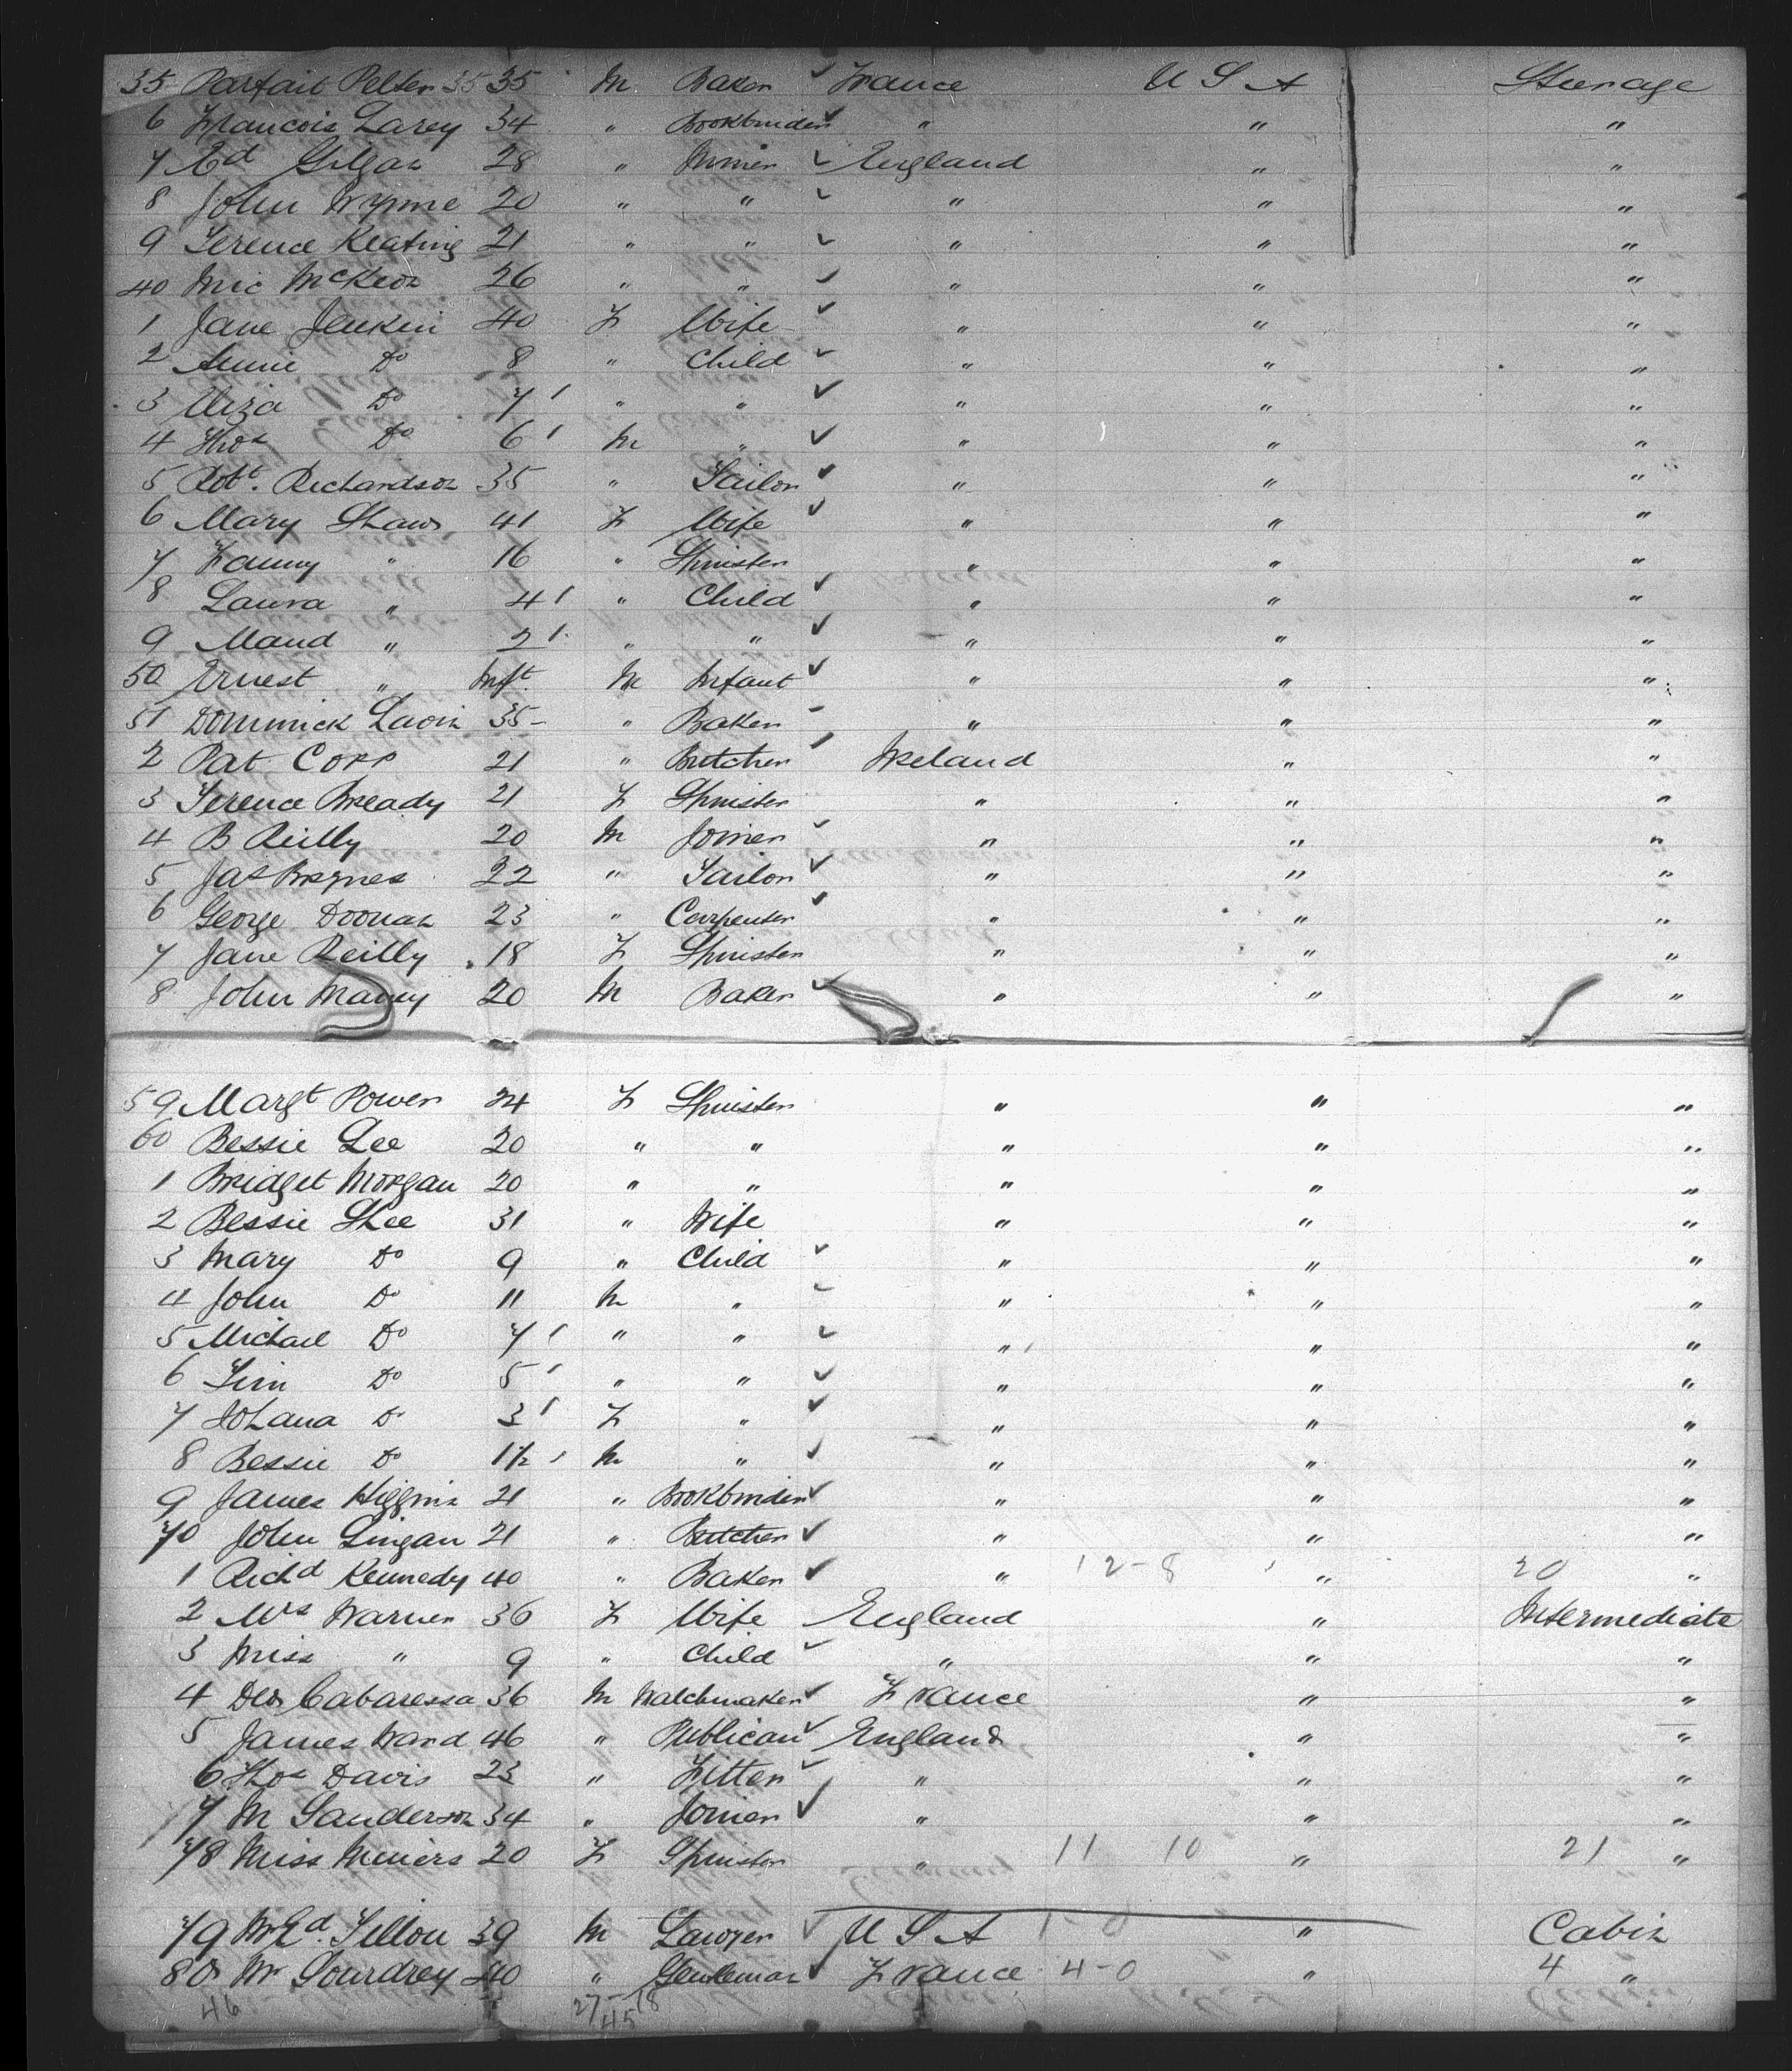 35 Parfait Pelter 35 35 M Baker ✓ France U S A Steerage
6 Francois Larey 34 " Bookbinder ✓ " " "
7 Ed Gilgan 28 " Miner ✓ England " "
8 John Wynne 20 " " ✓ " " "
9 Terence Keating 21 " " ✓ " " "
40 Mic McKeon 26 " " ✓ " " "
1 Jane Jenkin 40 F Wife ✓ " " "
2 Annie Do 8 " Child ✓ " " "
3 Eliza Do 7 ' " " ✓ " " "
4 Thos Do 6 ' M " ✓ " " "
5 Robt. Richardson 35 " Tailor ✓ " " "
6 Mary Shaw 41 F Wife ✓ " " "
7 Fanny " 16 " Spinster " " "
8 Laura " 4 ' " Child ✓ " " "
9 Maud " 2 ' " " ✓ " " "
50 Ernest " Inft. M Infant ✓ " " "
51 Dominick Lavin 35 " Baker - " " "
2 Pat Corr 21 " Butcher Ireland " "
3 Terence Bready 21 F Spinster " " "
4 B Reilly 20 M Joiner ✓ " " "
5 Jas Brynes 22 " Tailor ✓ " " "
6 George Doonan 23 " Carpenter ✓ " " "
7 Jane Reilly 18 F Spinster " " "
8 John Maney 20 M Baker ✓ " " "
59 Margt Power 24 F Spinster " " "
60 Bessie Lee 20 " " " " "
1 Bridget Morgan 20 " " " " "
2 Bessie Shee 31 " Wife " " "
3 Mary Do 9 " Child ✓ " " "
4 John Do 11 M " ✓ " " "
5 Michael Do 7 ' " " ✓ " " "
6 Tim Do 5 ' " " ✓ " " "
7 Johana Do 3 ' F " ✓ " " "
8 Bessie Do 1½ ' M " ✓ " " "
9 James Higgins 21 " Bookbinder ✓ " " "
70 John Lingan 21 " Butcher ✓ " " "
1 Richd Kennedy 40 " Baker ✓ " 12-8 " 20 "
2 Mrs Warner 36 F Wife England " Intermediate
3 Miss " 9 " Child ✓ " " "
4 Cabaressa 36 M Watchmaker ✓ France " "
5 James Ward 46 " Publican ✓ England " "
6 Thos Davis 23 " Fitter ✓ " " "
7 M Sanderson 34 " Joiner ✓ " " "
78 Miss Miners 20 F Spinster " 11 10 " 21 "
79 Mr Ed. Tillou 39 M Lawyer ✓ U S A 1-0 " Cabin
80 Mr Gourdrey 40 " Gentleman ✓ France 4-0 " 4 "
46 27-18
45